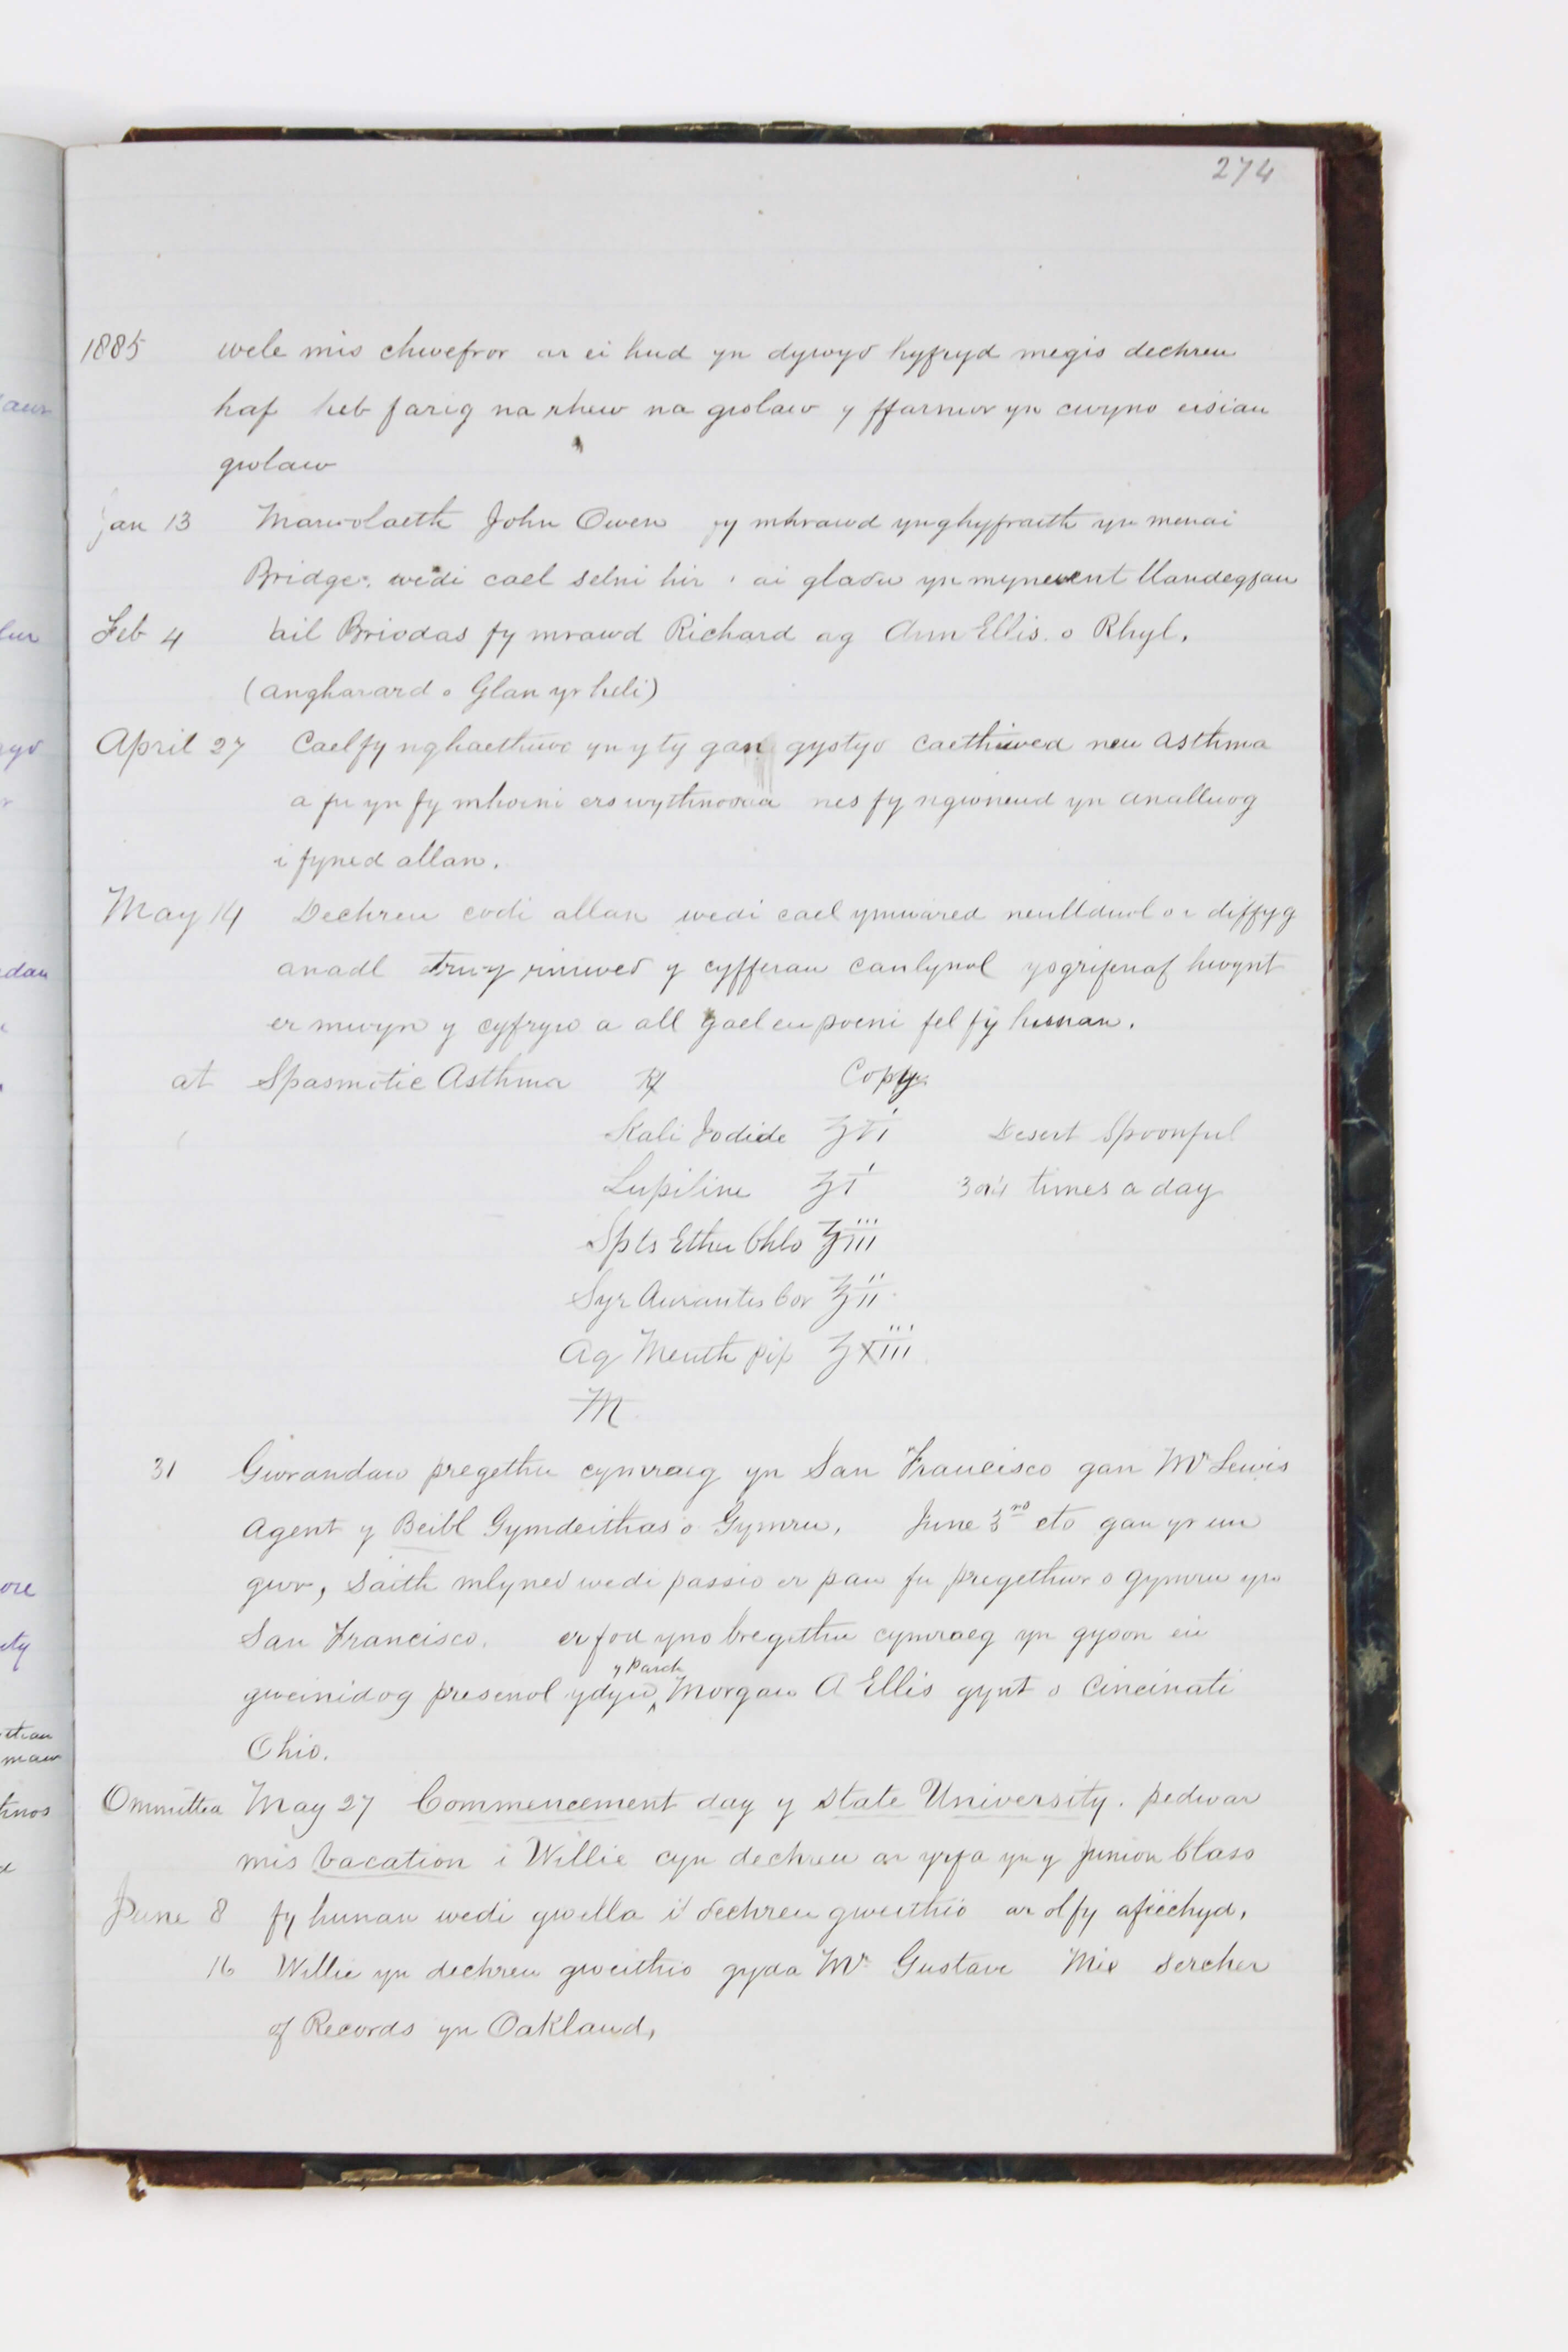 274
1885 wele mis chwefror ar ei hud yn dywyδ hyfryd megis dechreu
haf heb farig na rhew na gwlaw y ffarmwr yn cwyno eisiau
gwlaw
Jan 13 Marwolaeth John Owen fy mhrawd ynghyfraith yn menai
Bridge. wedi cael selni hir, ai glaδu yn mynwent llandegfan
Feb 4 ail Briodas fy mrawd Richard ag Ann Ellis o Rhyl,
(angharard o Glan yr heli)
April 27 Cael fy nghaethiwo yn y ty gan gystyδ caethiwed neu asthma
a fu yn fy mhoini ers wythnosau nes fy ngwneud yn analluog
i fyned allan.
May 14 Dechreu codi allan wedi cael ymwared neullduol o'r diffyg
anadl trwy rinweδ y cyfferau canlynol ysgrifenaf hwynt
er mwyn y cyfryw a all gael eu poeni fel fy hunan.
at Spasmitic Asthma ℞ Copy
Kali Jodide ʒvi Desert Spoonful
Lupiline ʒi 3 or 4 times a day
Spts Ether Chlo ʒiii
Syr Aurantis Cor ʒii
Aq Menth pip ʒxiii
M
31 Gwrandaw pregethu cymraeg yn San Francisco gan Mr Lewis
Agent y Beibl Gymdeithas o Gymru, June 3rd eto gan yr un
gwr, Saith mlyneδ wedi passio er pan fu pregethwr o gymru yn
San Francisco. er fod yno bregethu cymraeg yn gyson eu
gweinidog presenol ydyw y Parch Morgan A Ellis gynt o Cincinati
Ohio.
Ommittia May 27 Commencement day y State University. pedwar
mis Vacation i Willie cyn dechreu ar yrfa yn y Junion Class
June 8 fy hunan wedi gwella i δechreu gweithio ar ol fy afiechyd,
16 Willie yn dechreu gweithio gyda Mr Gustave Mix Sercher
of Records yn Oakland,